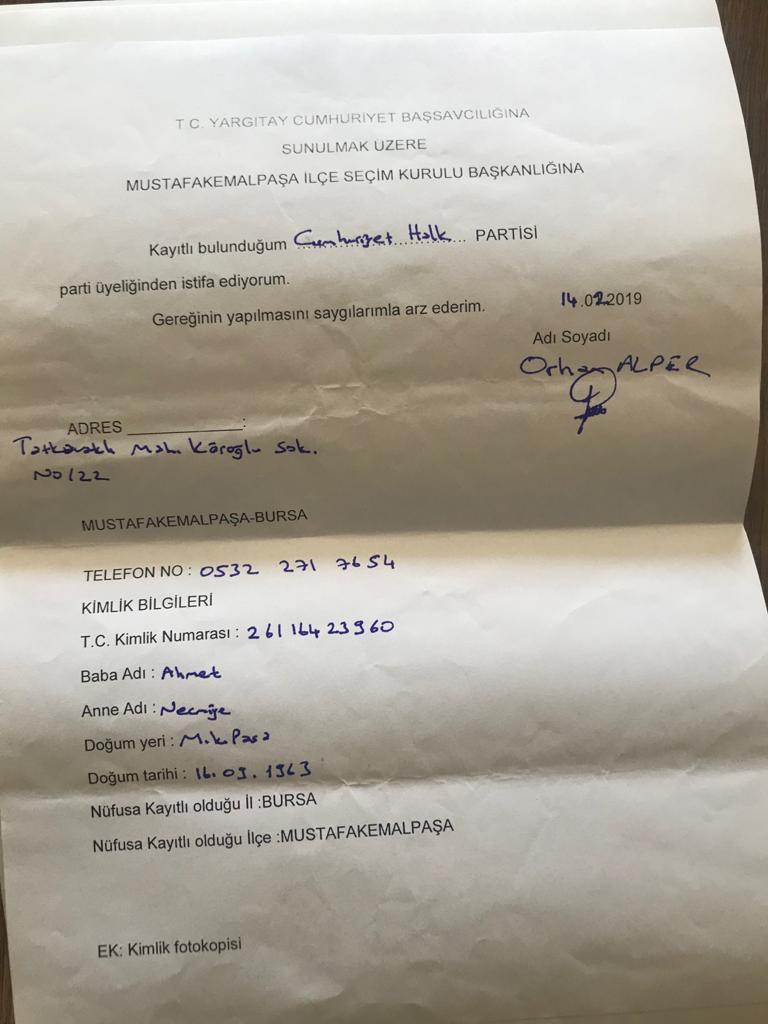 T C. YARGITAY CUMHURİYET BAŞSAVCILIĞINA
SUNULMAK ÜZERE
MUSTAFAKEMALPAŞA İLÇE SEÇİM KURULU BAŞKANLIĞINA
Kayıtlı bulunduğum Cumhuriyet Halk PARTİSİ
parti üyeliğinden istifa ediyorum.
Gereğinin yapılmasını saygılarımla arz ederim.
14.02.2019
Adı Soyadı
Orhan ALPER
ADRES ____________:
Tatkavaklı Mah. Köroğlu Sok.
NO/22
MUSTAFAKEMALPAŞA-BURSA
TELEFON NO : 0532 271 7654
KİMLİK BİLGİLERİ
T.C. Kimlik Numarası : 26116423960
Baba Adı : Ahmet
Anne Adı : Necmiye
Doğum yeri : M.k Paşa
Doğum tarihi : 16.09.1963
Nüfusa Kayıtlı olduğu İl :BURSA
Nüfusa Kayıtlı olduğu İlçe :MUSTAFAKEMALPAŞA
EK: Kimlik fotokopisi